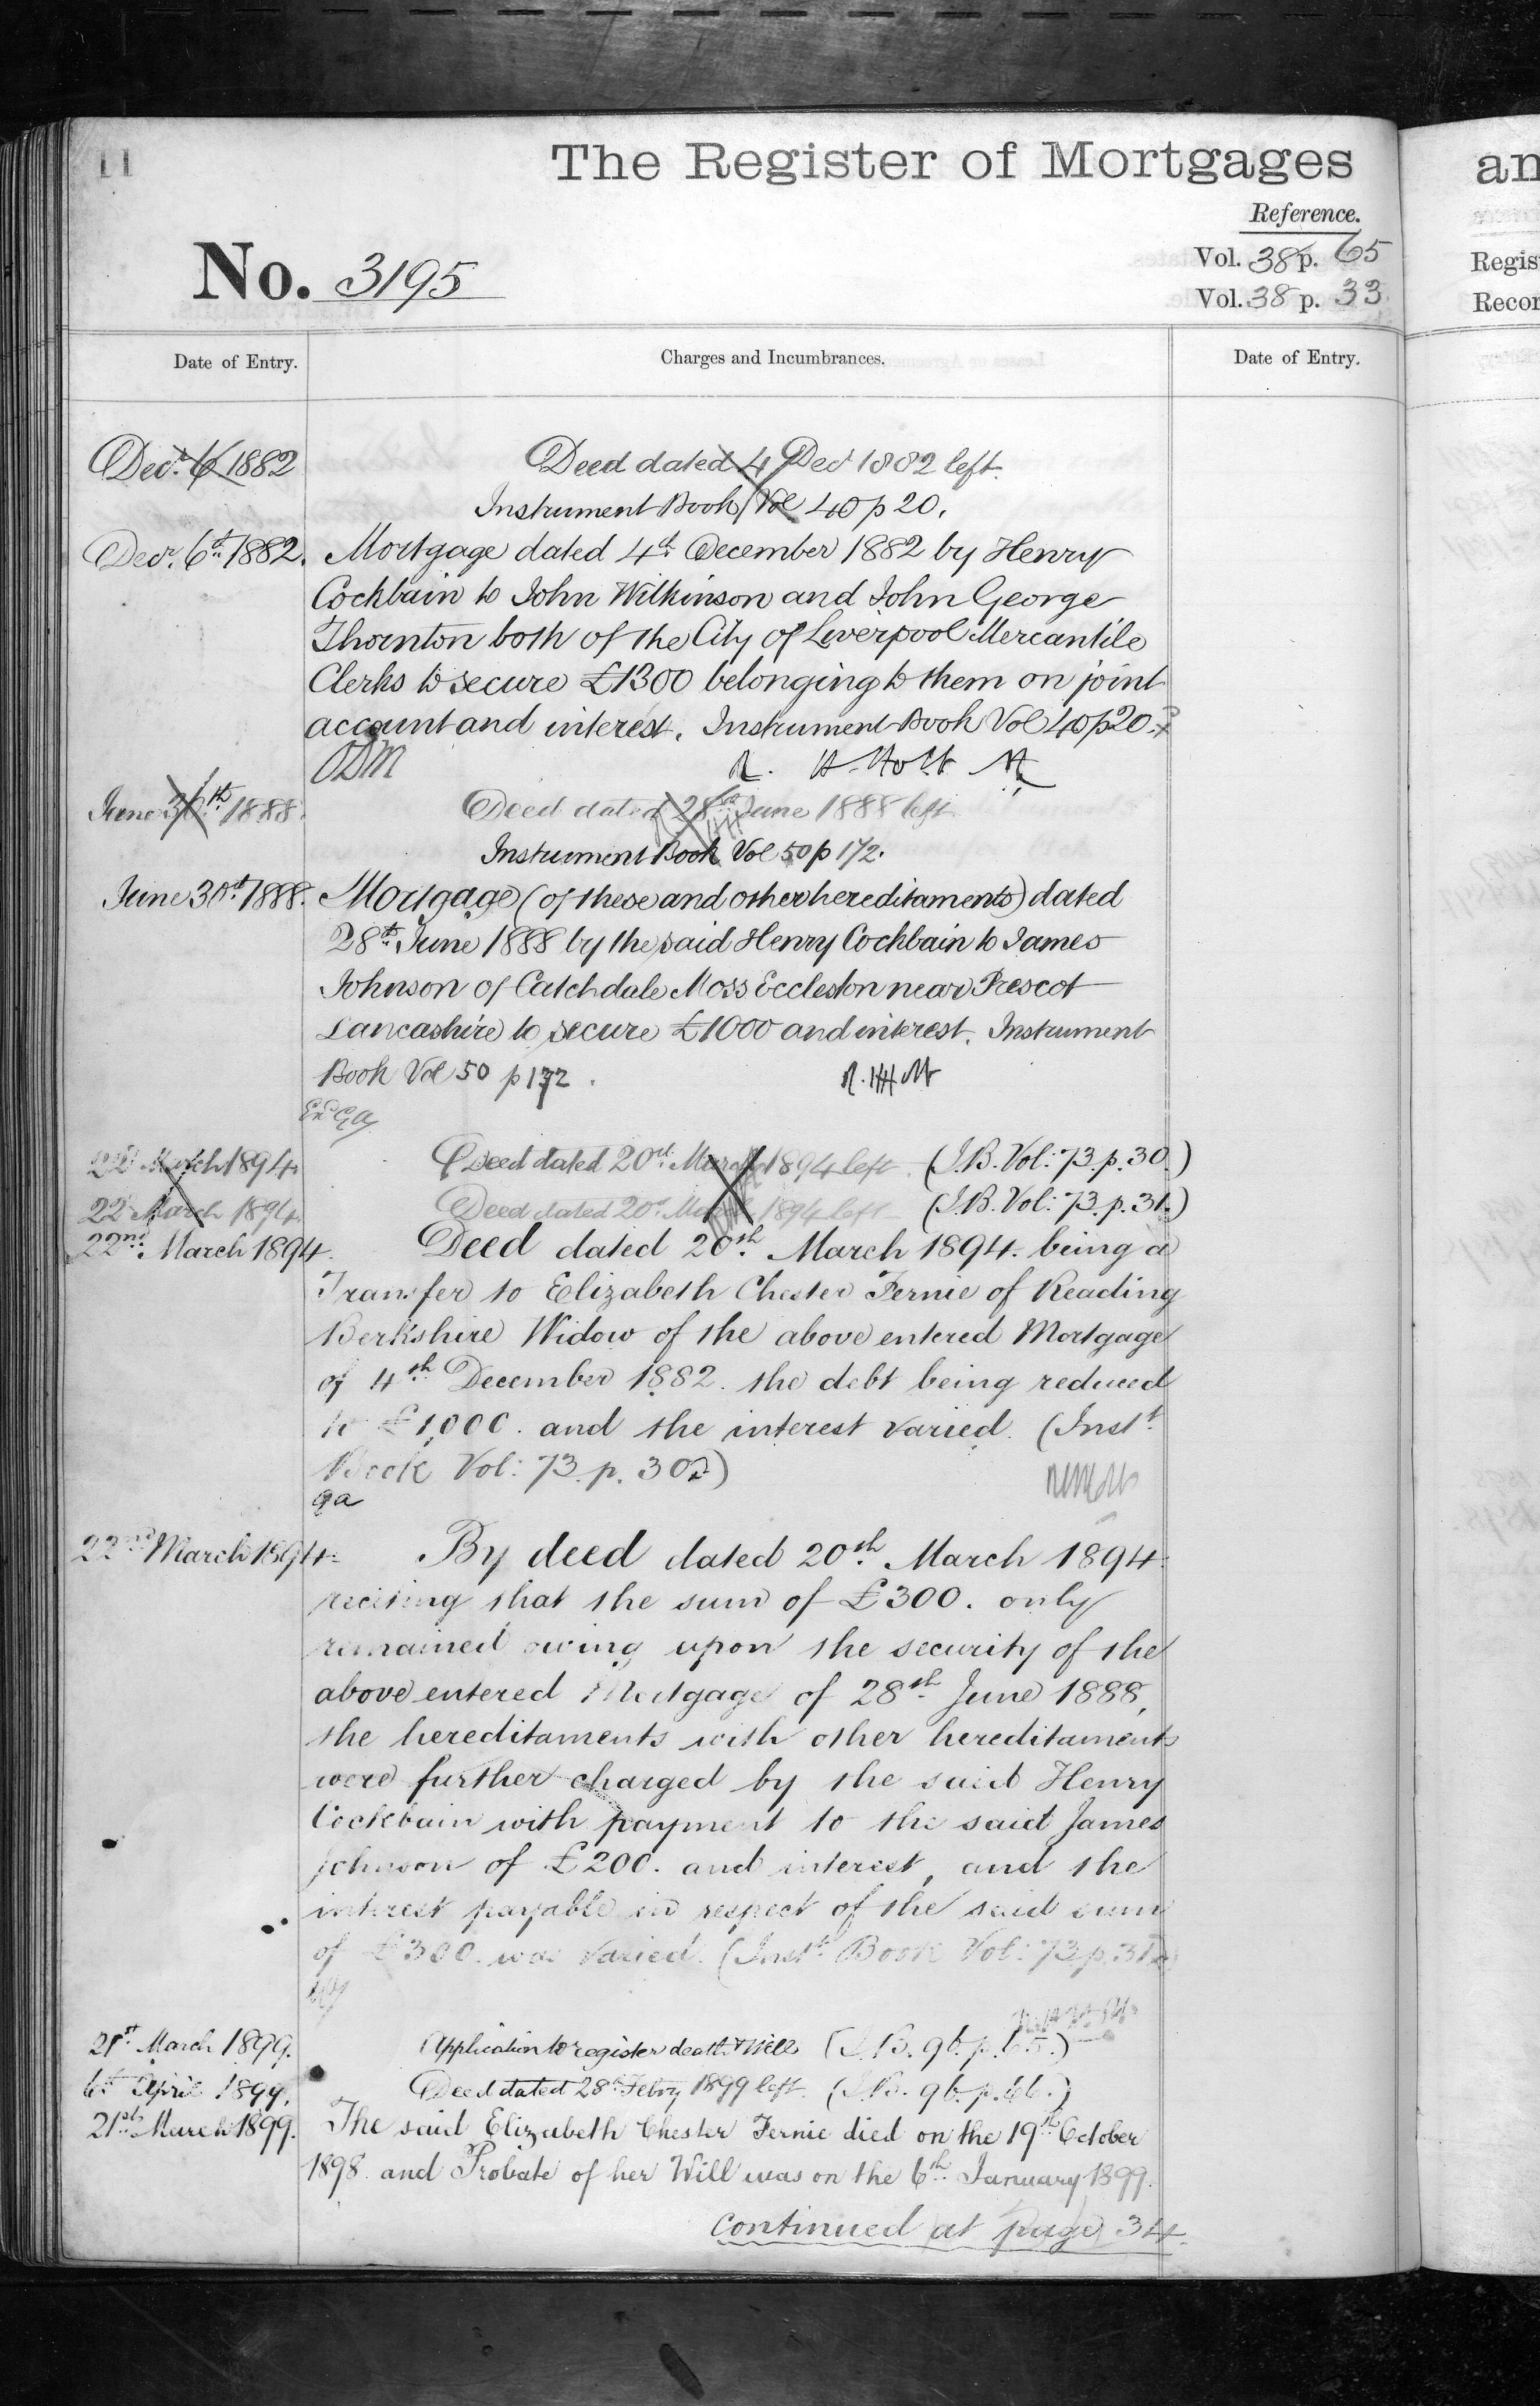 11
The Register of Mortgages
an
Reference.
No. 3195
Vol. 38 p. 65
Vol. 38 p. 33
Regis
Recor
Date of Entry.
Charges and Incumbrances.
Date of Entry.
Decr. 6 1882
Deed dated 4 Decr 1882 left.
Instrument Book Vol 40 p 20.
Decr. 6th 1882.
Mortgage dated 4th December 1882 by Henry
Cockbain to John Wilkinson and John George
Thornton both of the City of Liverpool Mercantile
Clerks to secure £1300 belonging to them on joint
account and interest. Instrument Book Vol 40 p 20.
June 30th 1888.
Deed dated 28th June 1888 left
Instrument Book Vol 50 p 172.
June 30th 1888.
Mortgage (of these and other hereditaments) dated
28th June 1888 by the said Henry Cockbain to James
Johnson of Catchdale Moss Eccleston near Prescot
Lancashire to secure £1000 and interest. Instrument
Book Vol 50 p 172.
22 March 1894
Deed dated 20th March 1894 left (I.B. Vol: 73. p. 30.)
22 March 1894
Deed dated 20th March 1894 left (I.B. Vol: 73. p. 31.)
22nd March 1894.
Deed dated 20th March 1894. being a
Transfer to Elizabeth Chester Fernie of Reading
Berkshire Widow of the above entered Mortgage
of 4th December 1882. the debt being reduced
to £1,000. and the interest varied. (Instt
Book Vol: 73. p. 30.)
ga
22nd March 1894.
By deed dated 20th March 1894.
reciting that the sum of £300. only
remained owing upon the security of the
above entered Mortgage of 28th June 1888,
the hereditaments with other hereditaments
were further charged by the said Henry
Cockbain with payment to the said James
Johnson of £200. and interest, and the
interest payable in respect of the said sum
of £300. was varied. (Instt Book Vol: 73. p. 31.)
21st March 1899.
Application to register death & Will (I.B. 96. p. 65.)
6th April 1899.
Deed dated 28th Febry 1899 left. (I.B. 96. p. 66.)
21st March 1899.
The said Elizabeth Chester Fernie died on the 19th October
1898. and Probate of her Will was on the 6th January 1899.
continued at page 34.